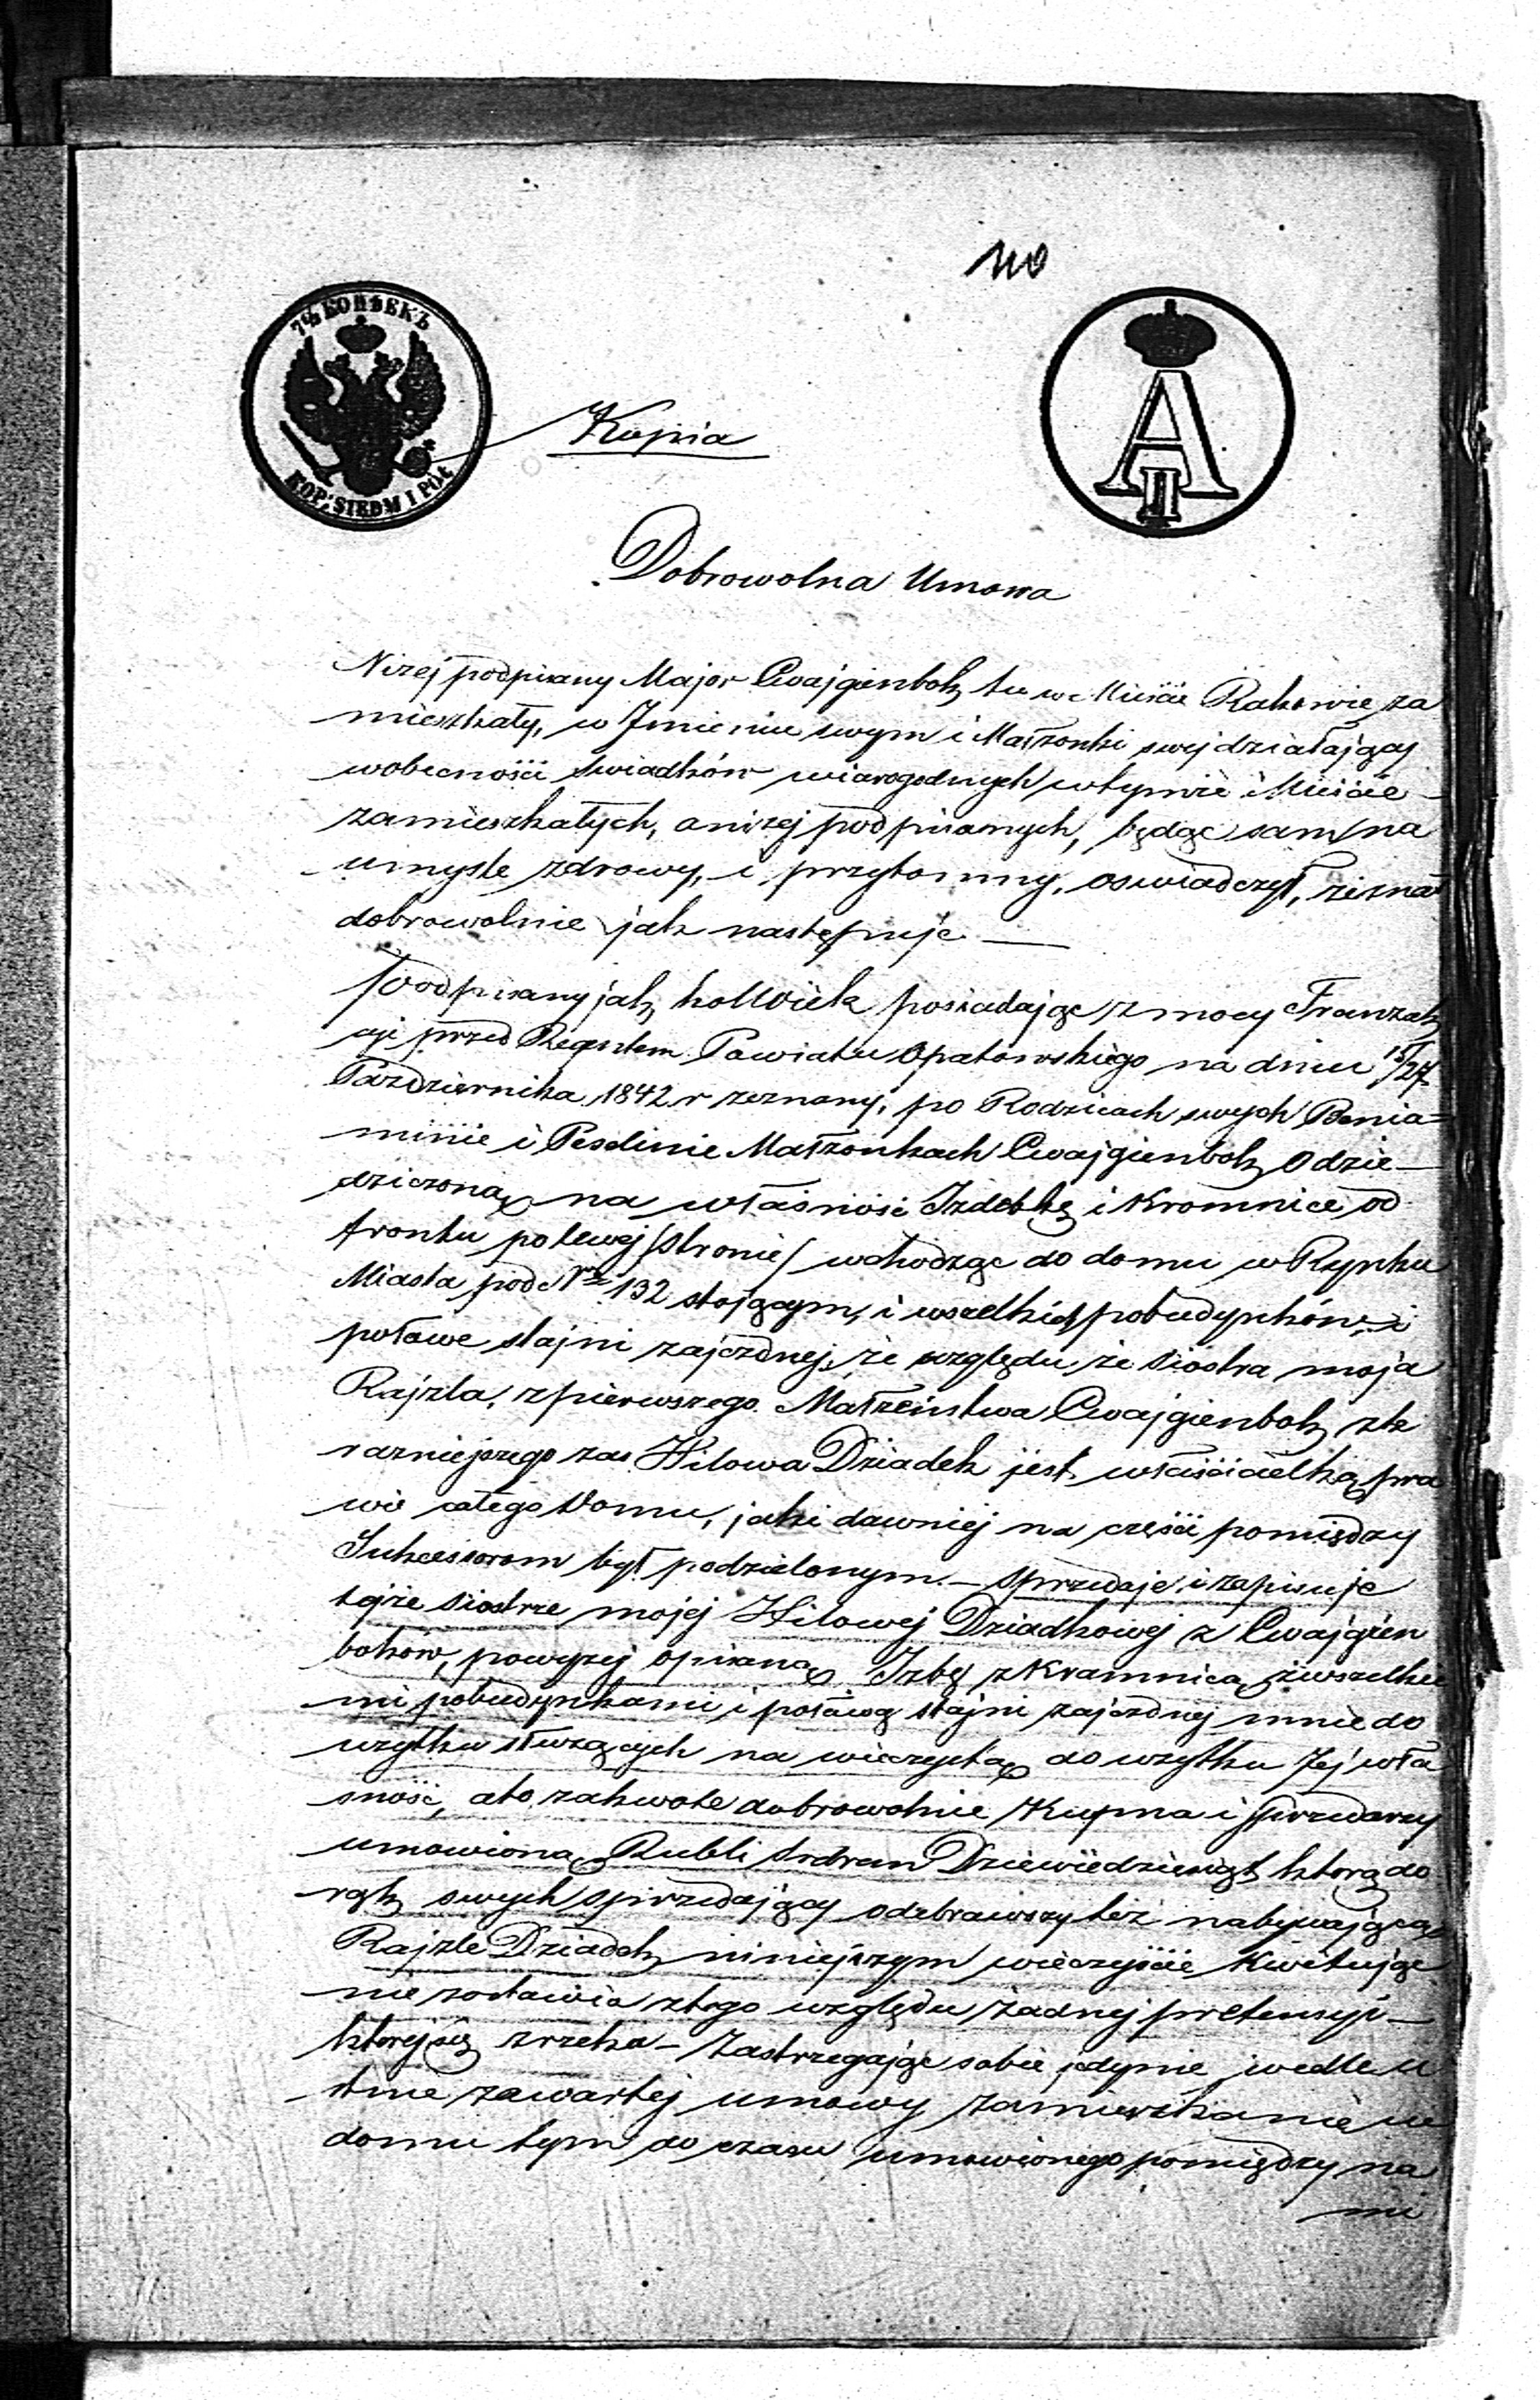 110
7½ КОПѢЕКЪ
KOP: SIEDM I PÓŁ
A
II
Kopia
Dobrowolna Umowa
Niżej podpisany Major Cwajgienbok tu w Mieście Rakowie za
mieszkały, w Jmieniu swym i Małżonki swej działający
wobecności świadków wiarogodnych w tymże Mieście
zamieszkałych, a niżej podpisanych, będąc sam na
umyśle zdrowy, i przytomny, oswiadczył, zeznał
dobrowolnie jak następuje —
Podpisany jak kolwiek posiadając z mocy Tranzak
cyi przed Regentem Powiatu Opatowskiego na dniu 15/27
Października 1842 r zeznany, po Rodzicach swych Benia=
minie i Peselinie Małżonkach Cwajgienbok odzie—
dziczoną na własność Izdebkę i Kromnice od
frontu po lewej /stronie/ wchodząc do domu w Rynku
Miasta pod Nr 132 stojącym, i wszelkich pobudynków, i
połowe stajni zajezdnej, ze względu że siostra moja
Rajzla, z pierwszego Małżeństwa Cwajgienbok z te
raźniejszego zas Hilowa Dziadek jest właścicielką pra
wie całego Domu, jaki dawniej na części pomiędzy
Sukcessorom był podzielonym. — sprzedaje i zapisuje
tejże siostrze mojej Hilowej Dziadkowej z Cwajgien
boków, powyżej opisaną Izbę z Kramnicą zwszelkie
mi pobudynkami i połową stajni zajezdnej mnie do
użytku służących na wieczystą do użytku Jej wła
sność, a to za kwote dobrowolnie Kupna i sprzedarzy
umowioną Rubli srebrem Dziewiędziesiąt którą do
rąk swych sprzedający odebrawszy też nabywającą
Rajzle Dziadek niniejszym wieczyście Kwitując
nie zostawia z tego względu żadnej pretensyi —
której się zrzeka — Zastrzegając sobie jedynie wedle u
stnie zawartej umowy zamieszkanie w
domu tym do czasu umowionego pomiędzy na
mi